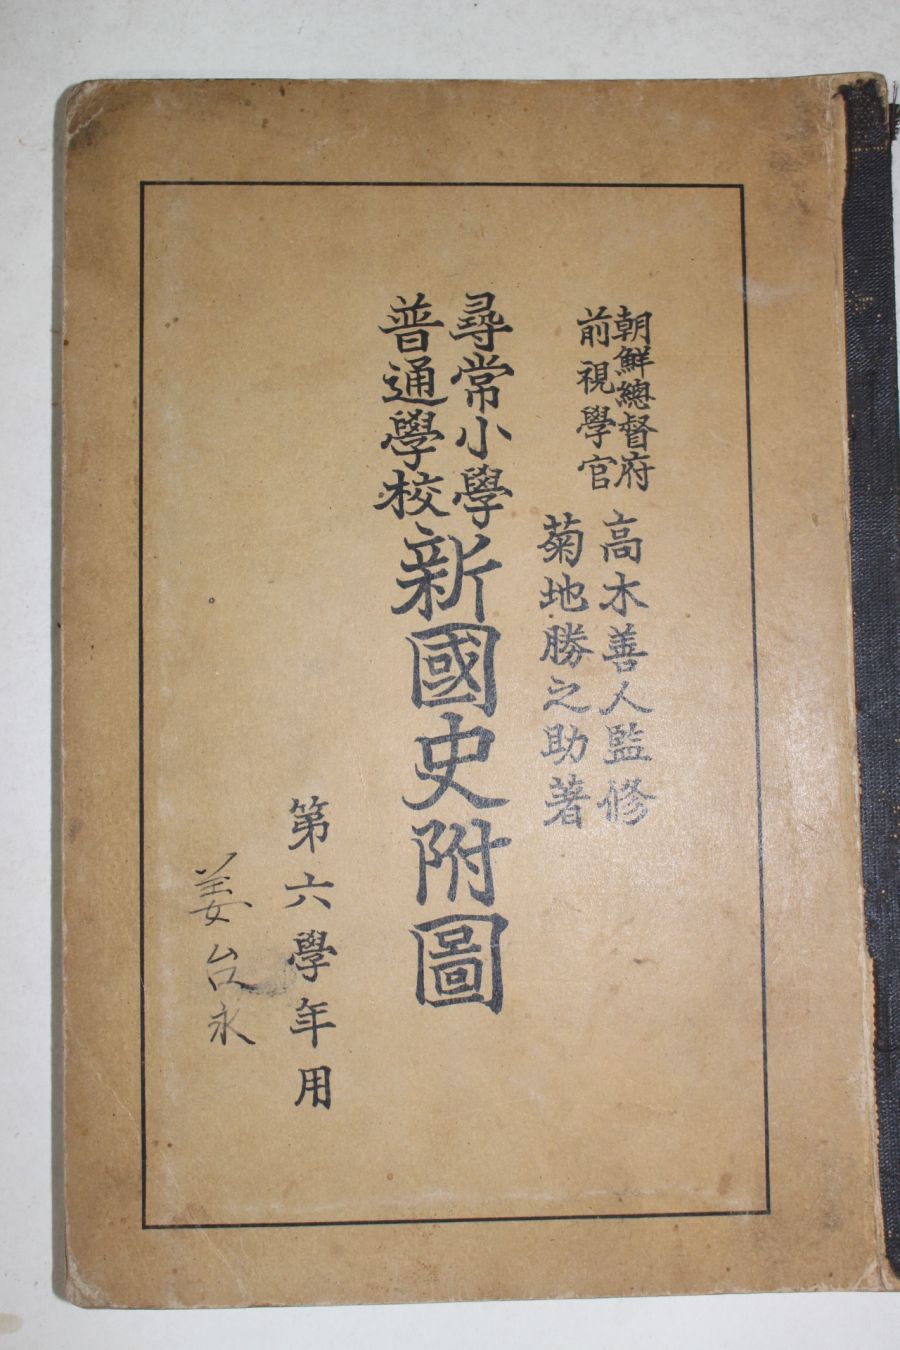 朝鮮總督府
前視學官
高木善人監修
菊地勝之助著
尋常小學
普通學校
新國史附圖
第六學年用
姜台永